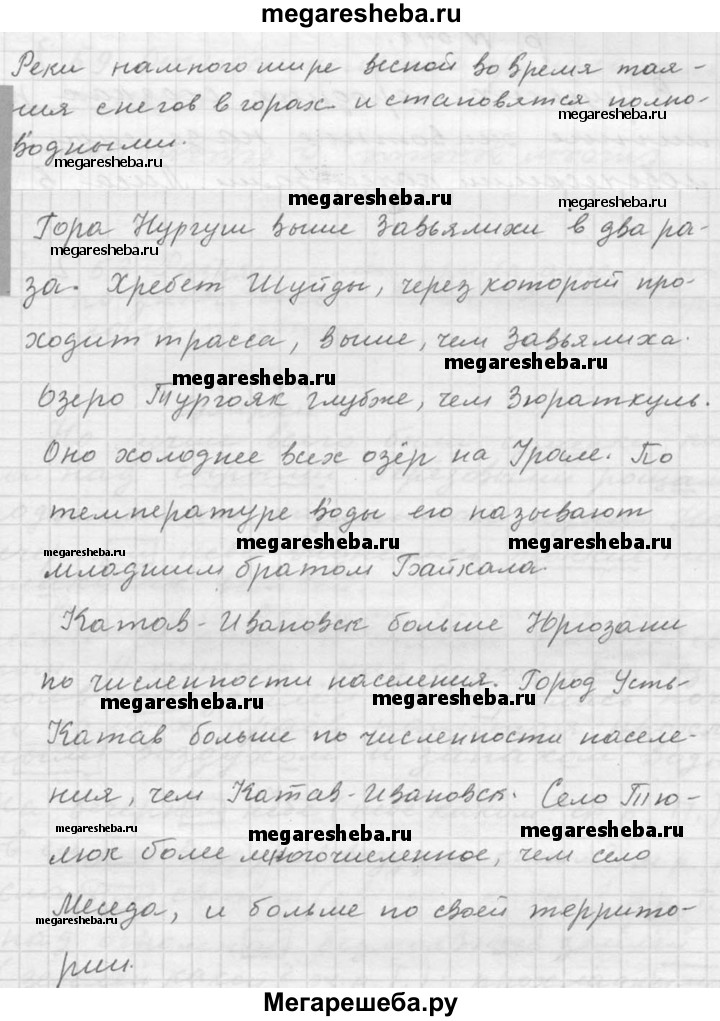 megaresheba.ru
Реки намного шире весной во время тая-
ния снегов в горах и становятся полно-
megaresheba.ru
водными.
megaresheba.ru
megaresheba.ru
Гора Нургуш выше Завьялихи в два ра-
megaresheba.ru
за. Хребет Шуйды, через который про-
ходит трасса, выше, чем Завьялиха.
megaresheba.ru
megaresheba.ru
Озеро Тургояк глубже, чем Зюраткуль.
Оно холоднее всех озёр на Урале. По
температуре воды его называют
megaresheba.ru megaresheba.ru megaresheba.ru
младшим братом Байкала.
Катав-Ивановск больше Юрюзани
по численности населения. Город Усть-
megaresheba.ru megaresheba.ru
Катав больше по численности населе-
ния, чем Катав-Ивановск. Село Тю-
megaresheba.ru megaresheba.ru megaresheba.ru
люк более многочисленное, чем село
Меседа, и больше по своей террито-
megaresheba.ru
рии.
Мегарешеба.ру